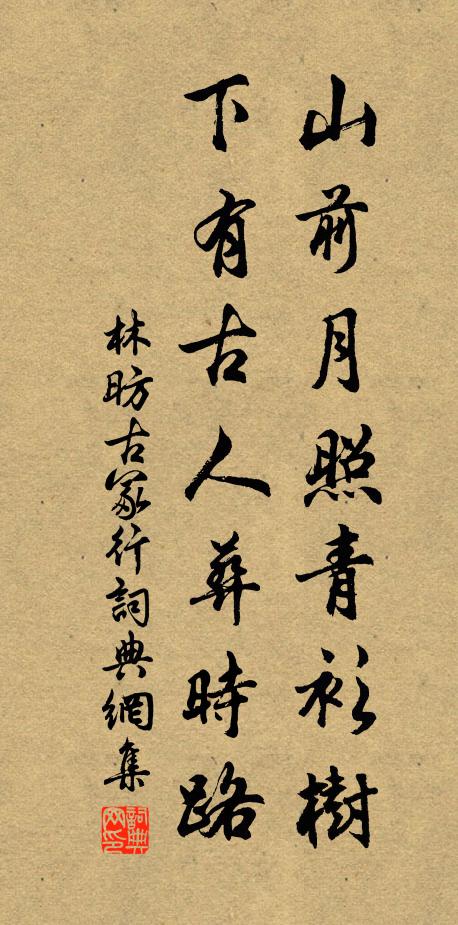 山前月照青衫樹
下有古人葬時路
林昉古冢行詞典網集
詞典网印